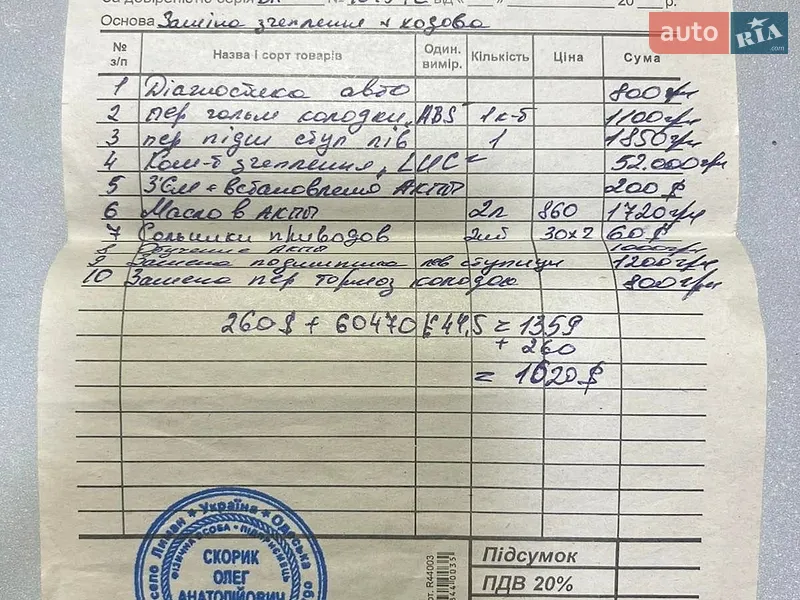 auto RIA .com
За довіреністю серія № від « » 20 р.
Основа Заміна зчеплення х кузова
№ з/п Назва і сорт товарів Один. вимір. Кількість Ціна Сума
1 Діагностика авто 800 грн
2 пер гальм колодки „ABS" 1 к-т 1100 грн
3 пер підш ступ лів 1 1850 грн
4 Ком-т зчеплення „LUC" 52.000 грн
5 З'єм + встановлення АКПП 200 $
6 Масло в АКПП 2л 860 1720 грн
7 Сольники приводов 2шт 30х2 60 $
8 АКПП 1000 грн
9 Замена подшипника лев ступици 1200 грн
10 Замена пер тормоз колодок 800 грн
260 $ + 60470 : 44,5 = 1359
+ 260
= 1620 $
село Лиман * Україна * Одеська об
ФІЗИЧНА ОСОБА - ПІДПРИЄМЕЦЬ
СКОРИК
ОЛЕГ
АНАТОЛІЙОВИЧ
рт. R44003
Підсумок
ПДВ 20%